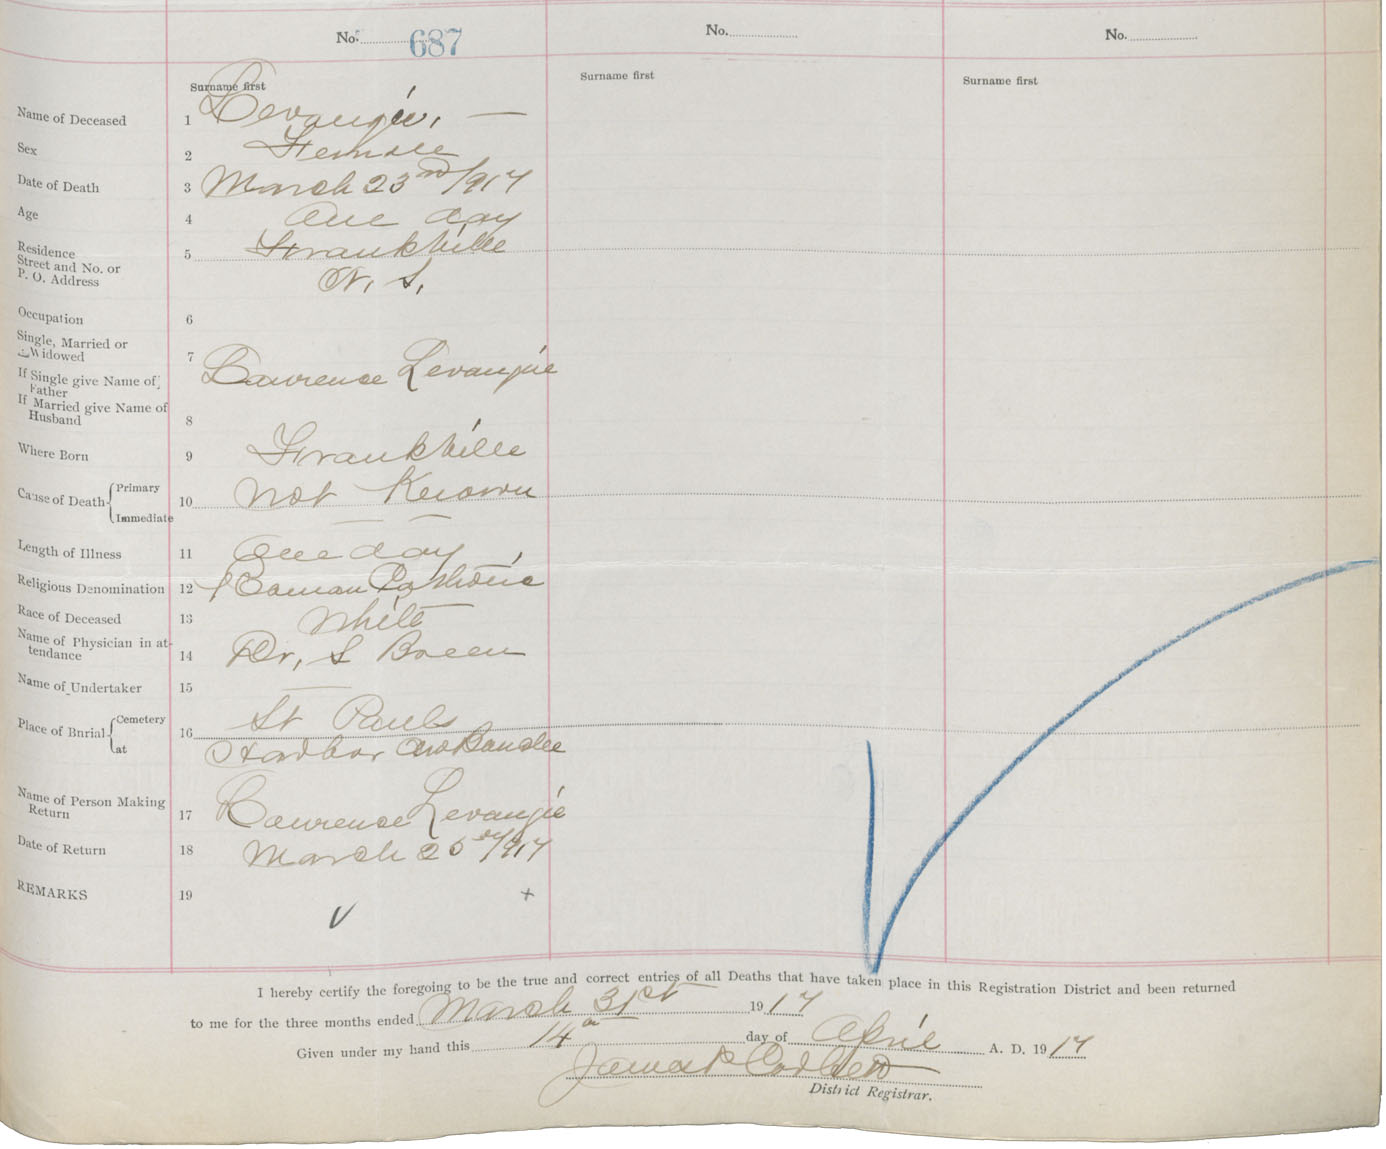 No. 687
No.
No.
Surname first
Surname first
Surname first
Name of Deceased 1 Levangie, —
Sex 2 Female
Date of Death 3 March 23rd/917
Age 4 One day
Residence
Street and No. or
P. O. Address
5 Frankville
N. S.
Occupation 6
Single, Married or
Widowed
7
If Single give Name of
Father
Lawrence Levangie
If Married give Name of
Husband
8
Where Born 9 Frankville
Cause of Death Primary
Immediate
10 Not Known
— —
Length of Illness 11 One day
Religious Denomination 12 Roman Catholic
Race of Deceased 13 White
Name of Physician in at-
tendance
14 Dr, S Breen
Name of Undertaker 15 —
Place of Burial Cemetery
at
16 St Pauls
Harbor Au Bouche
Name of Person Making
Return
17 Lawrence Levangie
Date of Return 18 March 25 /917
REMARKS 19
I hereby certify the foregoing to be the true and correct entries of all Deaths that have taken place in this Registration District and been returned
to me for the three months ended March 31st 1917
Given under my hand this 14 day of April A. D. 1917
Corbett
District Registrar.